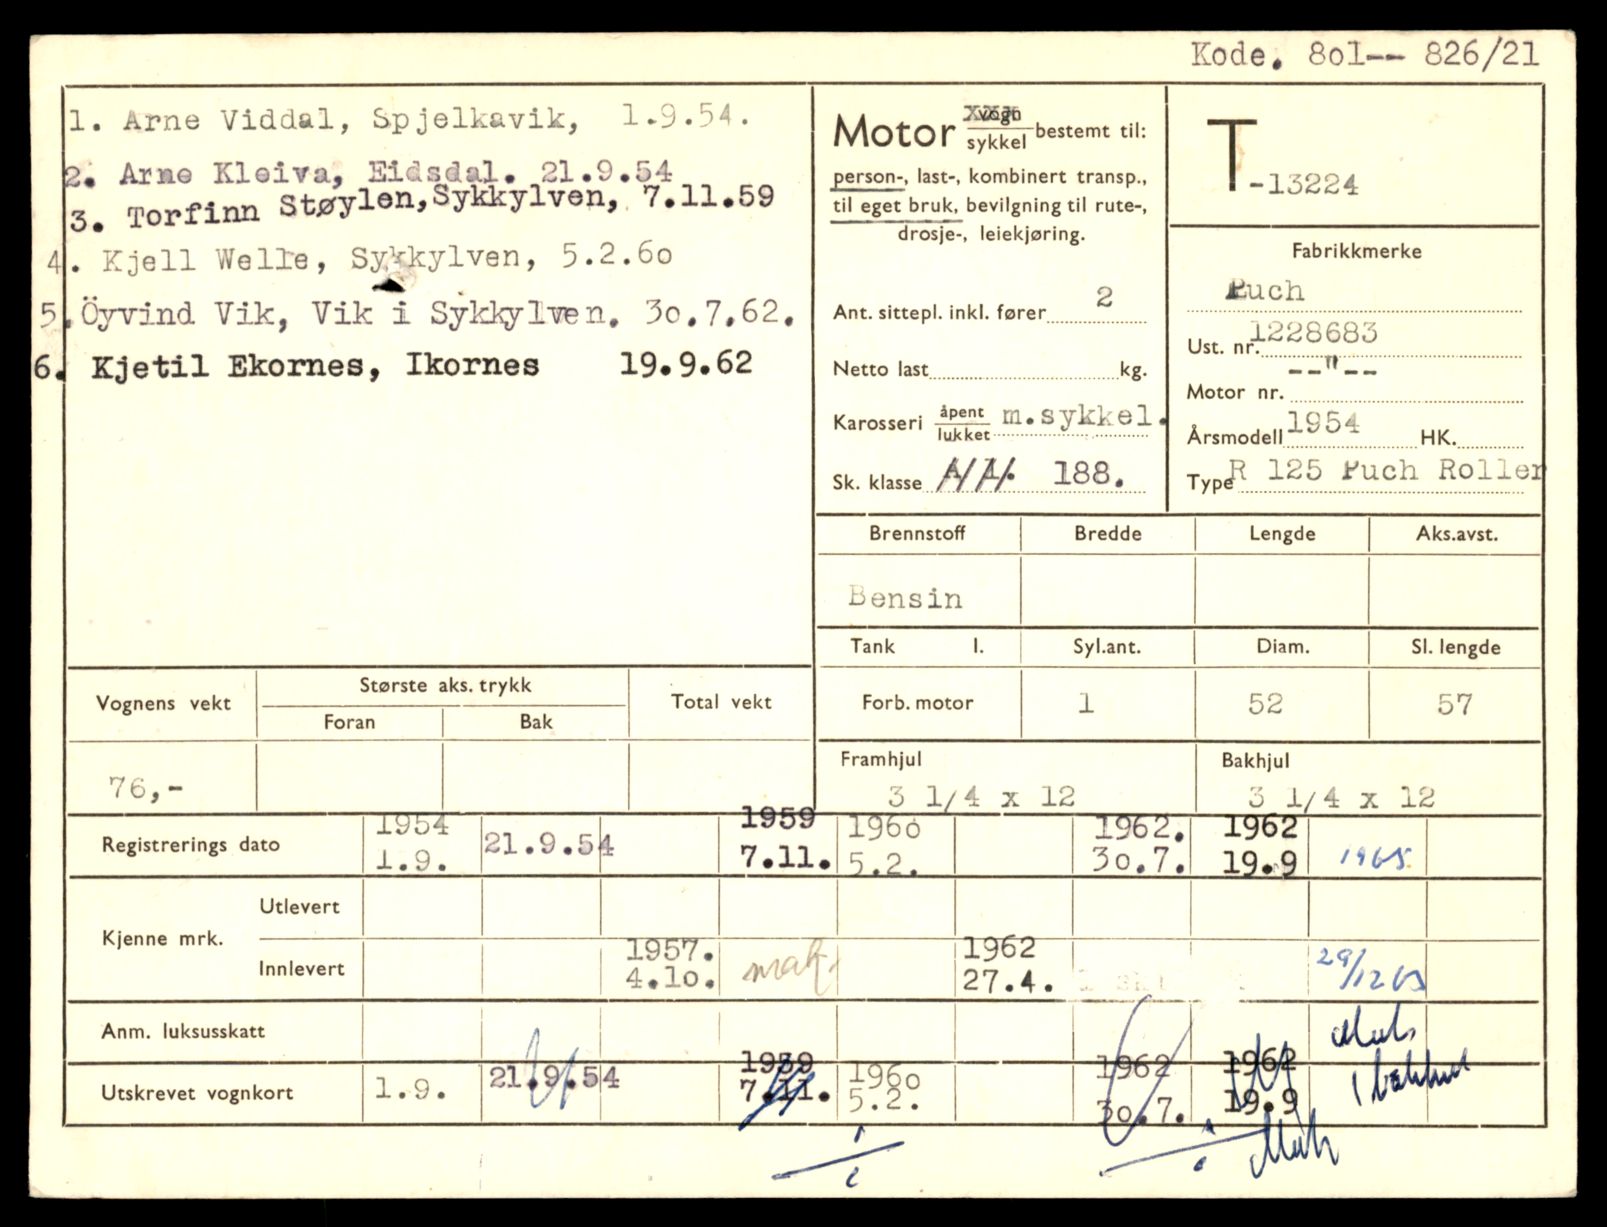 Kode. 8o1-- 826/21
1. Arne Viddal, Spjelkavik, 1.9.54.
2. Arne Kleiva, Eidsdal. 21.9.54
3. Torfinn Støylen, Sykkylven, 7.11.59
4. Kjell Welle, Sykkylven, 5.2.6o
5. Öyvind Vik, Vik i Sykkylven. 3o.7.62.
6. Kjetil Ekornes, Ikornes 19.9.62
Motor vogn sykkel bestemt til:
person-, last-, kombinert transp.,
til eget bruk, bevilgning til rute-,
drosje-, leiekjøring.
Ant. sittepl. inkl. fører 2
Netto last kg.
Karosseri åpent lukket m.sykkel.
Sk. klasse 188.
T-13224
Fabrikkmerke
Puch
Ust. nr. 1228683
Motor nr. --"--
Årsmodell 1954 HK.
Type R 125 Puch Roller
Brennstoff Bredde Lengde Aks.avst.
Bensin
Tank l. Syl.ant. Diam. Sl. lengde
Forb. motor 1 52 57
Framhjul Bakhjul
3 1/4 x 12 3 1/4 x 12
Vognens vekt Største aks. trykk Total vekt
Foran Bak
76,-
1954 1959 196o 1962. 1962
Registrerings dato 1.9. 21.9.54 7.11. 5.2. 3o.7. 19.9 1965
Kjenne mrk.
Utlevert
1957. 1962
Innlevert 4.1o. mak. 27.4. 29/12 65
Anm. luksusskatt
1959 196o 1962 1962
Utskrevet vognkort 1.9. 21.9.54 7.11. 5.2. 3o.7. 19.9